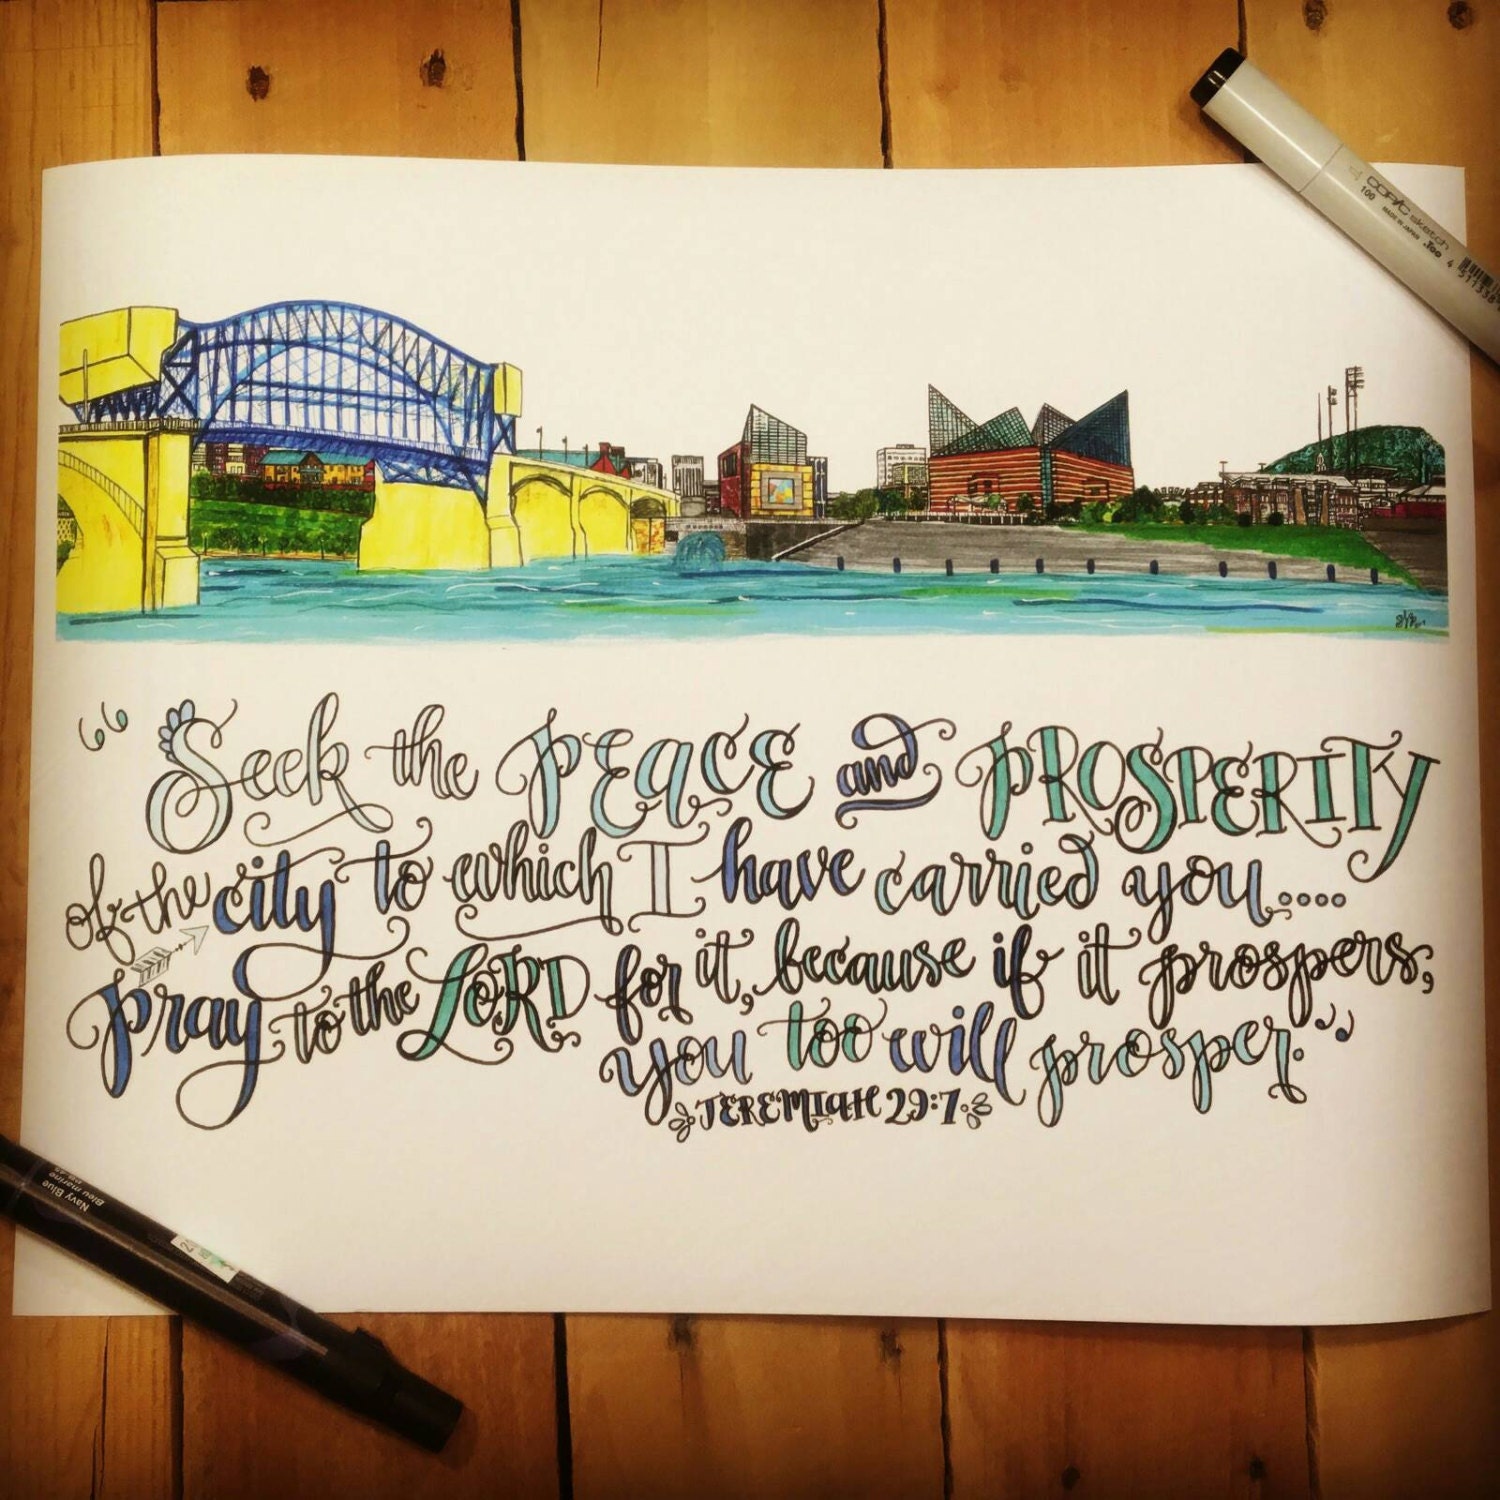 COPIC sketch
100
MADE IN JAPAN .Too
"Seek the PEACE and PROSPERITY
of the city to which I have carried you....
pray to the LORD for it, because if it prospers,
you too will prosper."
JEREMIAH 29:7
Navy Blue
Bleu marine